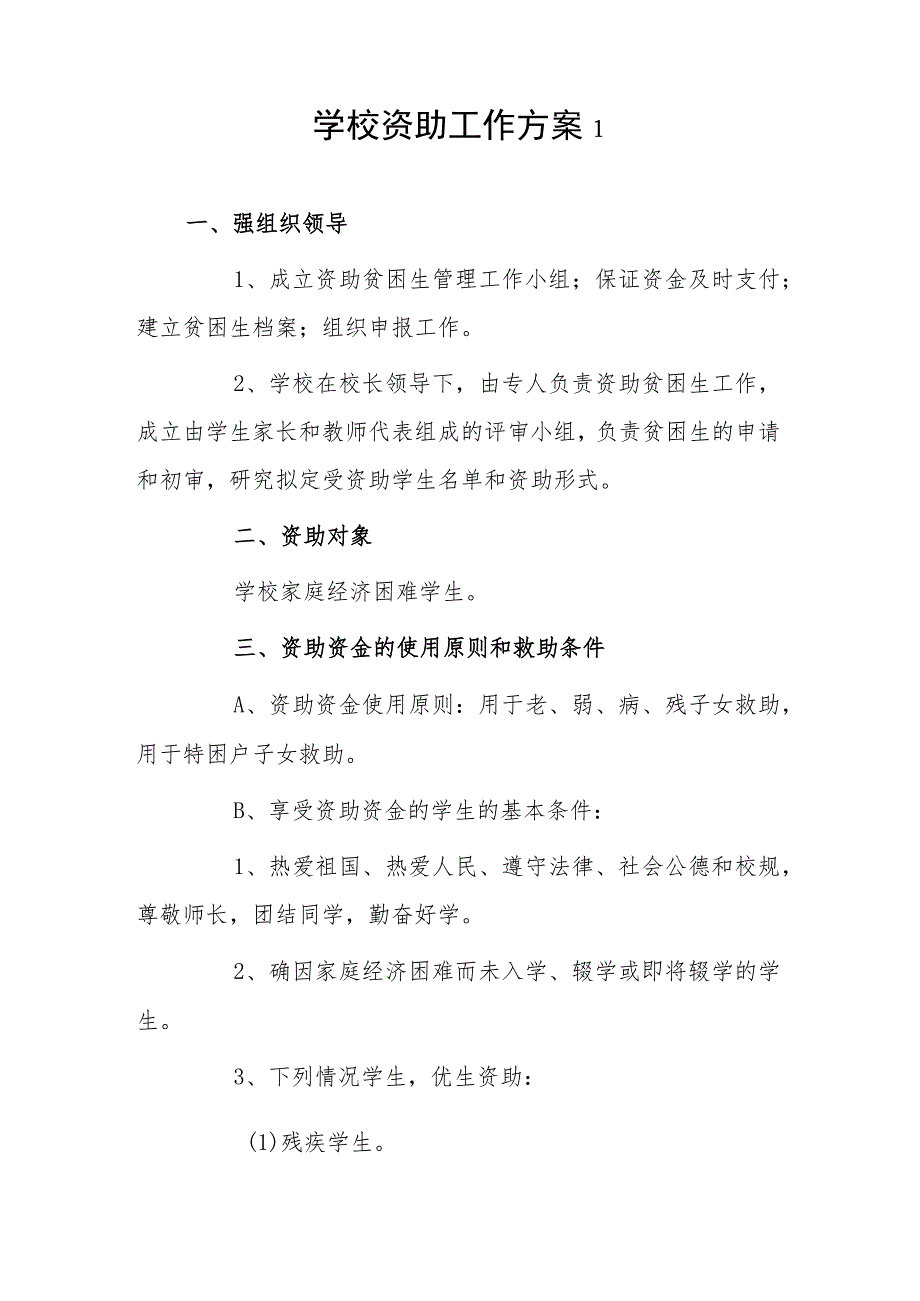 学校资助工作方案 1
一、强组织领导
1、成立资助贫困生管理工作小组；保证资金及时支付；
建立贫困生档案；组织申报工作。
2、学校在校长领导下，由专人负责资助贫困生工作，
成立由学生家长和教师代表组成的评审小组，负责贫困生的申请
和初审，研究拟定受资助学生名单和资助形式。
二、资助对象
学校家庭经济困难学生。
三、资助资金的使用原则和救助条件
A、资助资金使用原则：用于老、弱、病、残子女救助，
用于特困户子女救助。
B、享受资助资金的学生的基本条件：
1、热爱祖国、热爱人民、遵守法律、社会公德和校规，
尊敬师长，团结同学，勤奋好学。
2、确因家庭经济困难而未入学、辍学或即将辍学的学
生。
3、下列情况学生，优生资助：
(1)残疾学生。